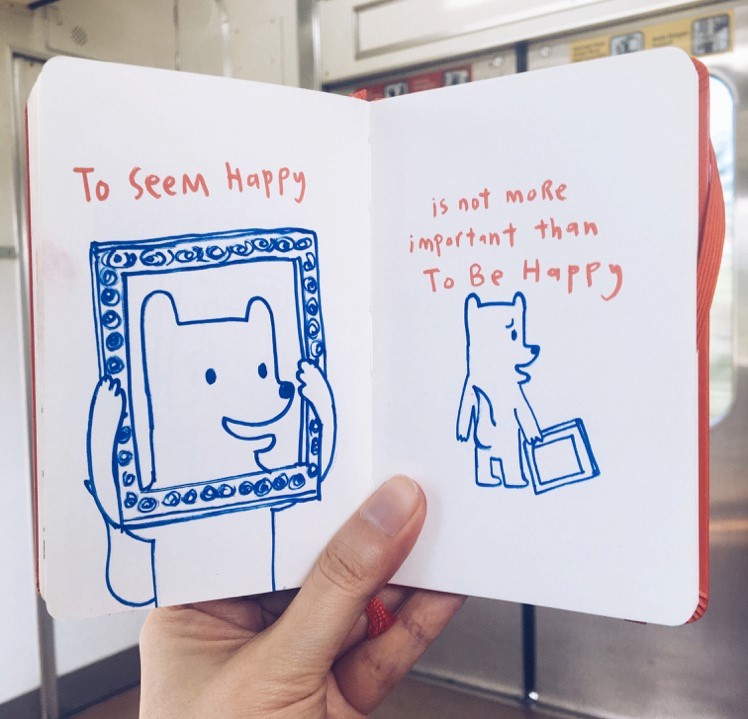 To Seem Happy
is not more
important than
To Be Happy